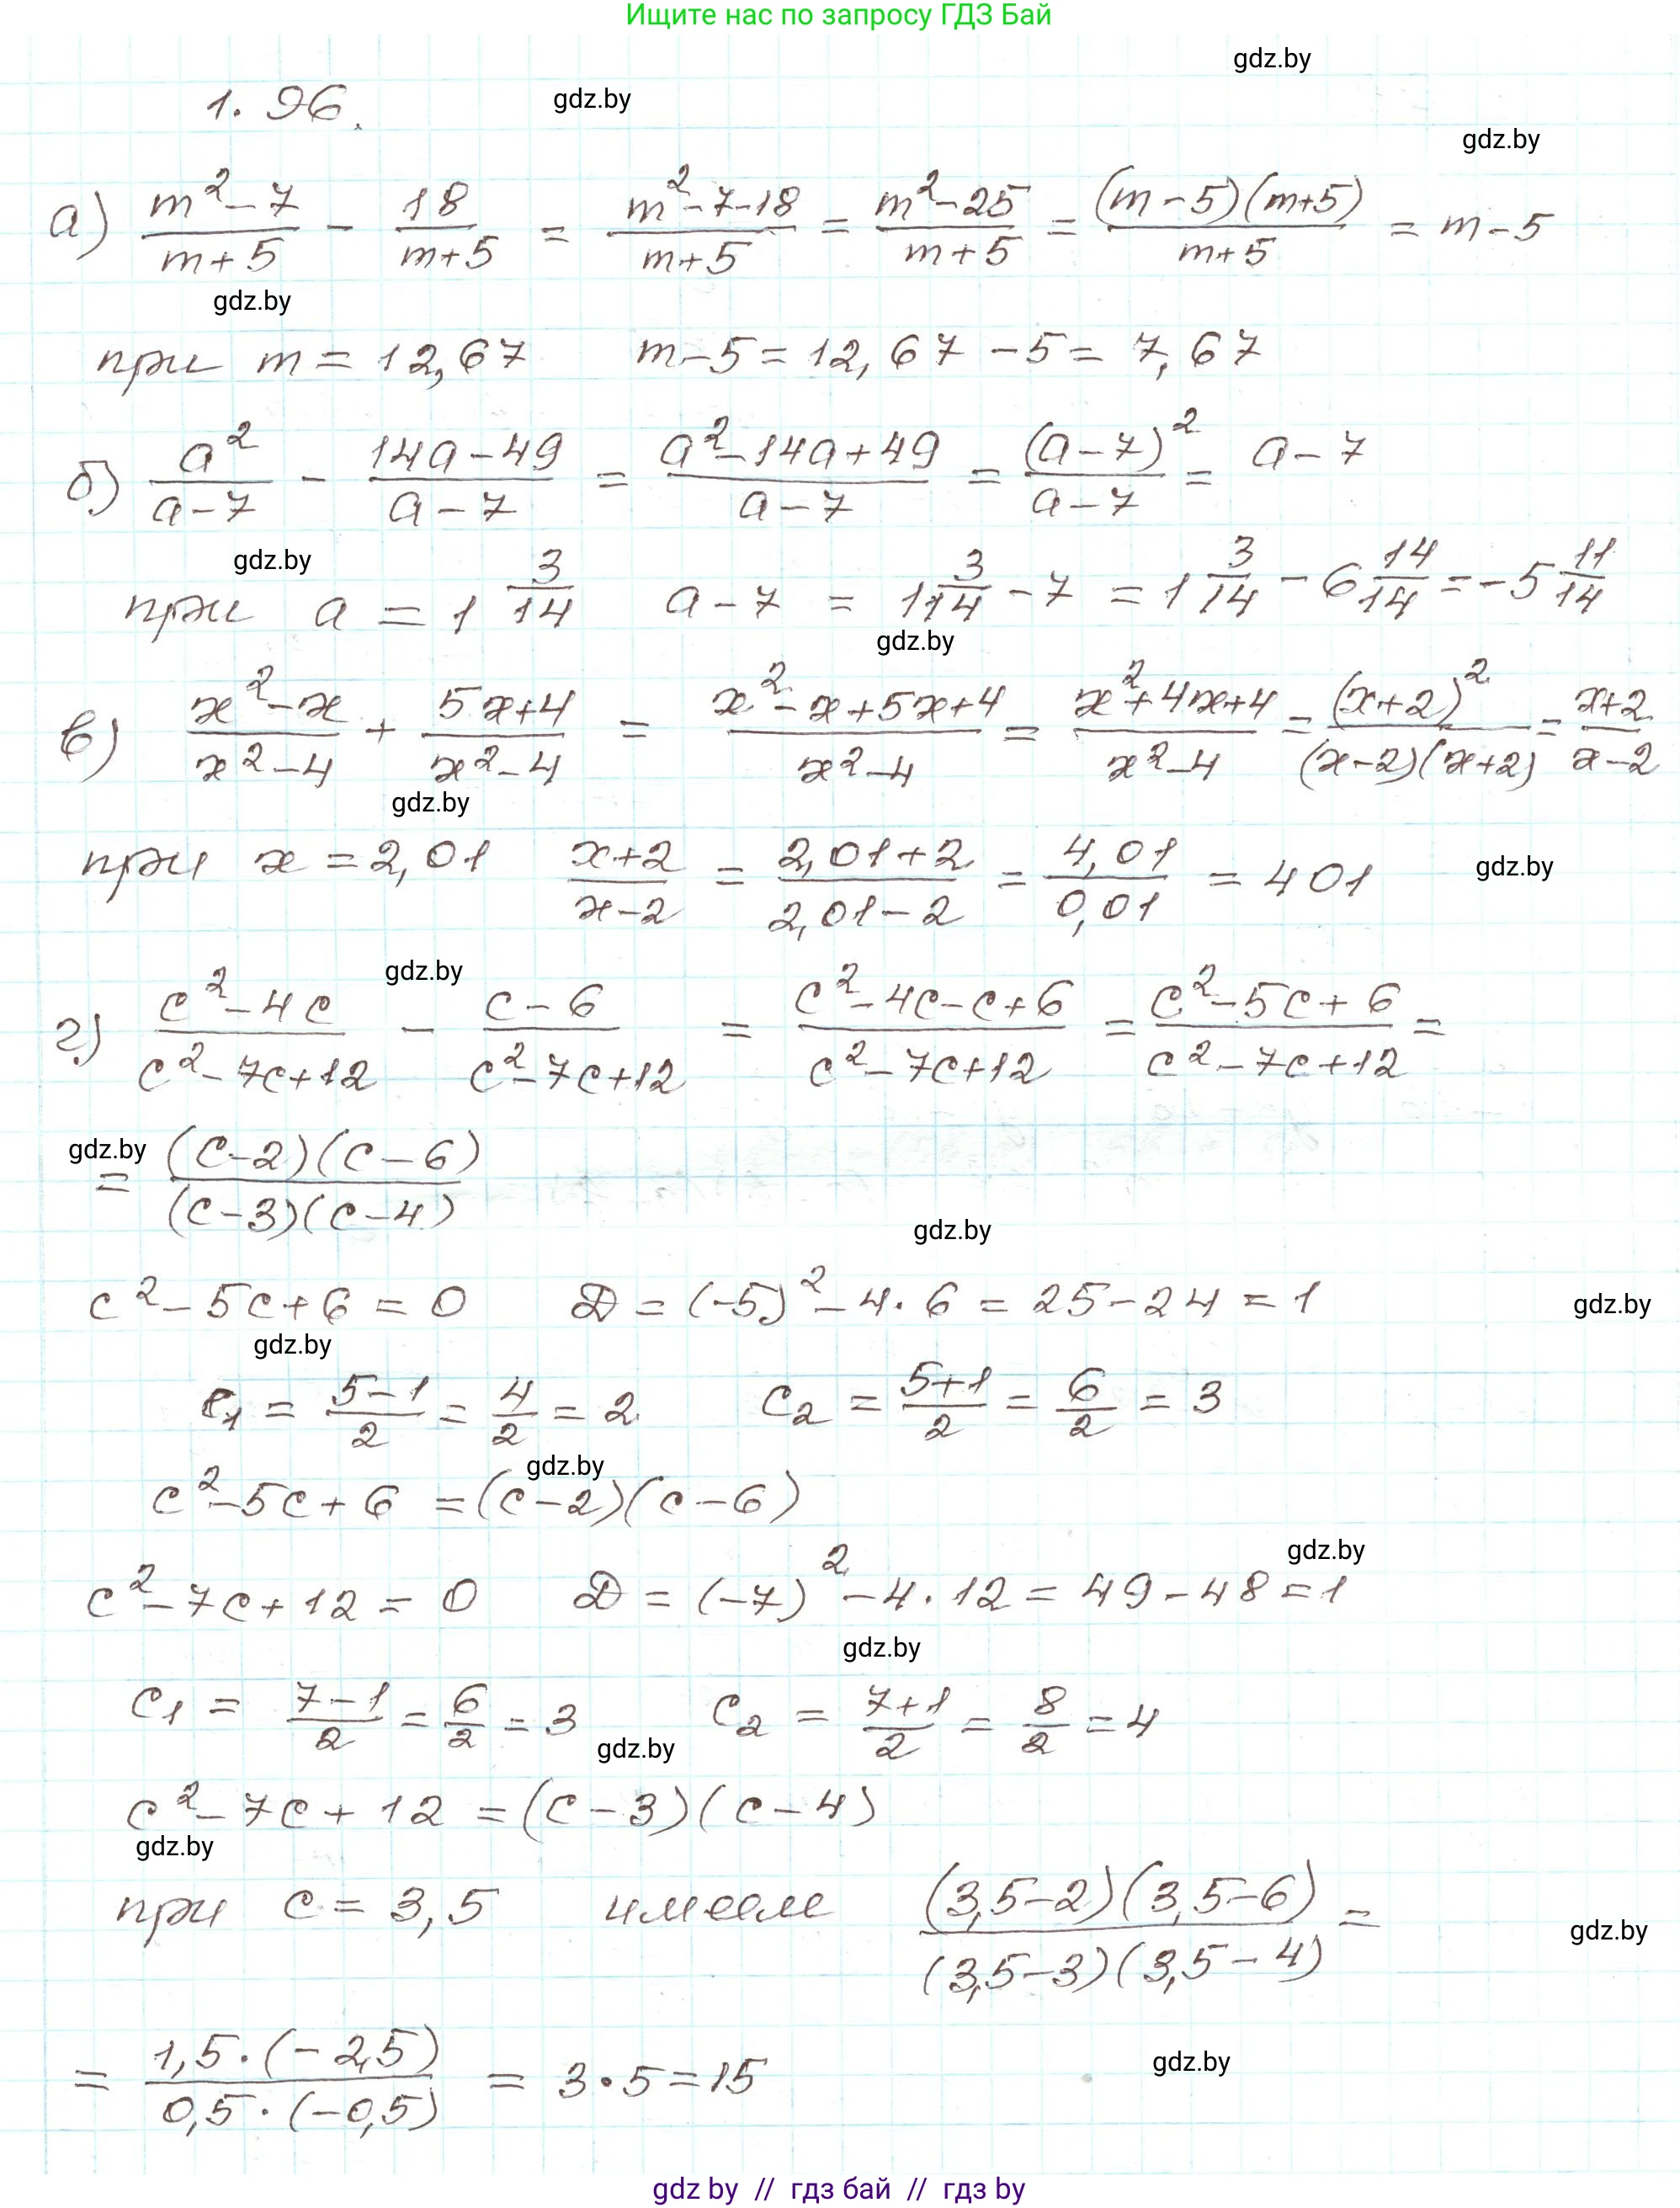 Ищите нас по запросу ГДЗ Бай
gdz.by
1.96. gdz.by
gdz.by
а) (m²-7)/(m+5) - 18/(m+5) = (m²-7-18)/(m+5) = (m²-25)/(m+5) = ((m-5)(m+5))/(m+5) = m-5
gdz.by
при m = 12,67 m-5 = 12,67 -5 = 7,67
б) a²/(a-7) - (14a-49)/(a-7) = (a²-14a+49)/(a-7) = (a-7)²/(a-7) = a-7
gdz.by
при a = 1 3/14 a-7 = 1 3/14 - 7 = 1 3/14 - 6 14/14 = -5 11/14
gdz.by
в) (x²-x)/(x²-4) + (5x+4)/(x²-4) = (x²-x+5x+4)/(x²-4) = (x²+4x+4)/(x²-4) = (x+2)²/((x-2)(x+2)) = (x+2)/(x-2)
gdz.by
при x = 2,01 (x+2)/(x-2) = (2,01+2)/(2,01-2) = 4,01/0,01 = 401 gdz.by
gdz.by
г) (c²-4c)/(c²-7c+12) - (c-6)/(c²-7c+12) = (c²-4c-c+6)/(c²-7c+12) = (c²-5c+6)/(c²-7c+12) =
gdz.by
= ((c-2)(c-6))/((c-3)(c-4))
gdz.by
c²-5c+6 = 0 D = (-5)²-4·6 = 25-24 = 1 gdz.by
gdz.by
c₁ = (5-1)/2 = 4/2 = 2 c₂ = (5+1)/2 = 6/2 = 3
gdz.by
c²-5c+6 = (c-2)(c-6)
gdz.by
c²-7c+12 = 0 D = (-7)²-4·12 = 49-48 = 1
gdz.by
c₁ = (7-1)/2 = 6/2 = 3 c₂ = (7+1)/2 = 8/2 = 4
gdz.by
c²-7c+12 = (c-3)(c-4)
gdz.by
при c = 3,5 имеем ((3,5-2)(3,5-6))/((3,5-3)(3,5-4)) =
gdz.by
= (1,5·(-2,5))/(0,5·(-0,5)) = 3·5 = 15
gdz.by
gdz by // гдз бай // гдз by